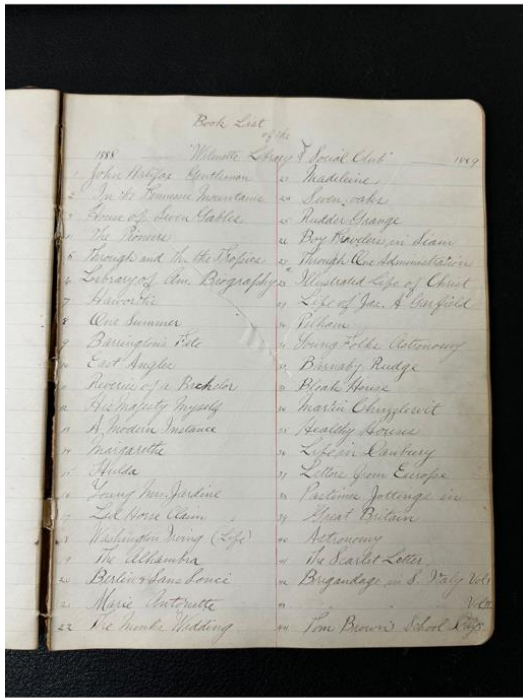 Book List
of the
1888 Wilmette Library & Social Club 1889
1 John Halifax Gentleman
2 In the Tennessee Mountains
3 House of Seven Gables
4 The Pioneers
5 Through and Th. the Tropics
6 Library of Am. Biography
7 Haworth's
8 One Summer
9 Barrington's Fate
10 East Angles
11 Reverie of a Bachelor
12 His Majesty Myself
13 A Modern Instance
14 Margarethe
15 Hulda
16 Young Mrs. Jardine
17 Led Horse Claim
18 Washington Irving (Life)
19 The Alhambra
20 Berlin & Sans Souci
21 Marie Antonette
22 The Minks Wedding
23 Madeline
24 Seven oaks
25 Rudder Grange
26 Boy Travelers in Siam
27 Through One Administration
28 Illustrated Life of Christ
29 Life of Jas. A Garfield
30 Pelham
31 Young Folks Astronomy
32 Barnaby Rudge
33 Bleak House
34 Martin Chuzzlewit
35 Healthy Houses
36 Life in Danbury
37 Letters from Europe
38 Pastime Jottings in
39 Great Britain
40 Astronomy
41 The Scarlet Letter
42 Brigandage in S. Italy Vol I
43 " " " Vol II
44 Tom Brown School Days